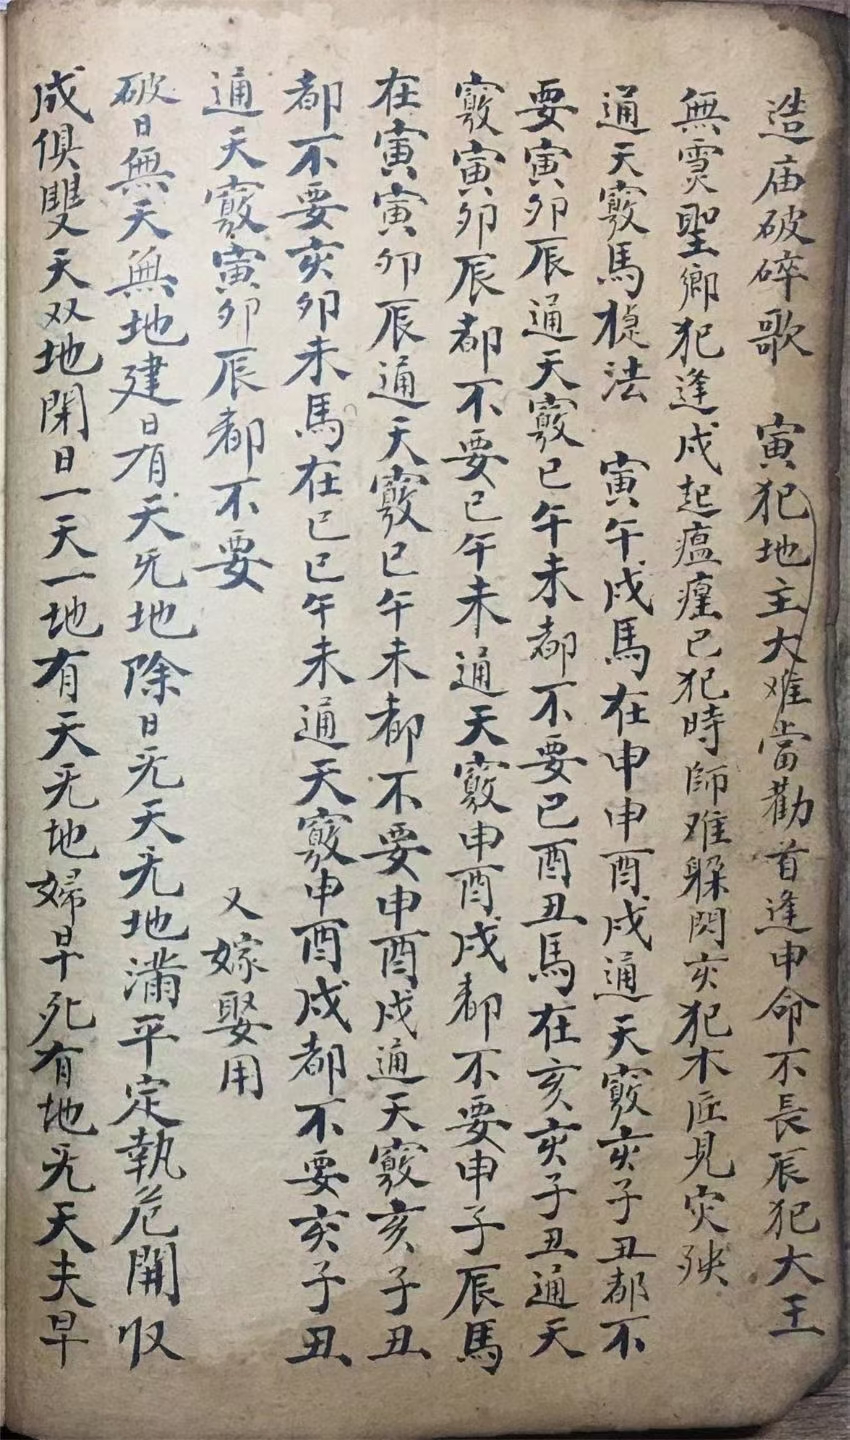 造庙破碎歌　寅犯地主大难當勸首逢申命不長辰犯大王
無灵聖鄉犯逢戍起瘟㾮已犯時師难躲閃亥犯木匠見灾殃
通天竅馬㨗法　寅午戍馬在申申酉戍通天竅亥子丑都不
要寅卯辰通天竅已午未都不要已酉丑馬在亥亥子丑通天
竅寅卯辰都不要已午未通天竅申酉戍都不要申子辰馬
在寅寅卯辰通天竅已午未都不要申酉戍通天竅亥子丑
都不要亥卯未馬在已已午未通天竅申酉戍都不要亥子丑
通天竅寅卯辰都不要　又嫁娶用
破日無天無地建日有天旡地除日旡天旡地滿平定執危開収
成俱雙天双地閉日一天一地有天旡地婦早死有地旡天夫早